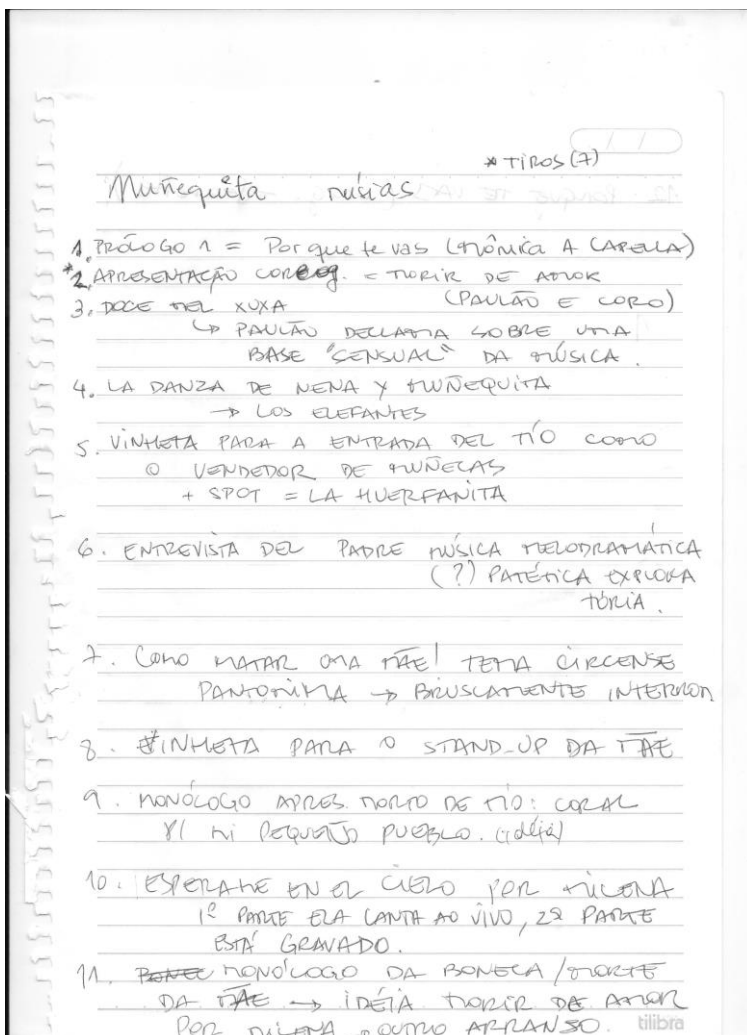 * TIROS (7)
Muñequita músicas
1. PRÓLOGO 1 = Por que te vas (MÔNICA A CAPELLA)
*2. APRESENTAÇÃO COREOG. = MORIR DE AMOR
(PAULÃO E CORO)
3. DOCE MEL XUXA
↳ PAULÃO DECLAMA SOBRE UMA
BASE "SENSUAL" DA MÚSICA.
4. LA DANZA DE NENA Y MUÑEQUITA
→ LOS ELEFANTES
5. VINHETA PARA A ENTRADA DEL TÍO COMO
O VENDEDOR DE MUÑECAS
+ SPOT = LA HUERFANITA
6. ENTREVISTA DEL PADRE MÚSICA MELODRAMÁTICA
(?) PATÉTICA EXPLORA
TÓRIA.
7. COMO MATAR UMA MÃE! TEMA CIRCENSE
PANTOMIMA → BRUSCAMENTE INTERROM
8. VINHETA PARA O STAND-UP DA MÃE
9. MONÓLOGO APRES. MORTO DE TÍO: CORAL
MI PEQUEÑO PUEBLO. (idéia)
10. ESPERAME EN EL CIELO POR MILENA
1ª PARTE ELA CANTA AO VIVO, 2ª PARTE
ESTÁ GRAVADO.
11. MONÓLOGO DA BONECA / MORTE
DA MÃE → IDÉIA MORIR DE AMOR
POR MILENA OUTRO ARRANJO.
tilibra